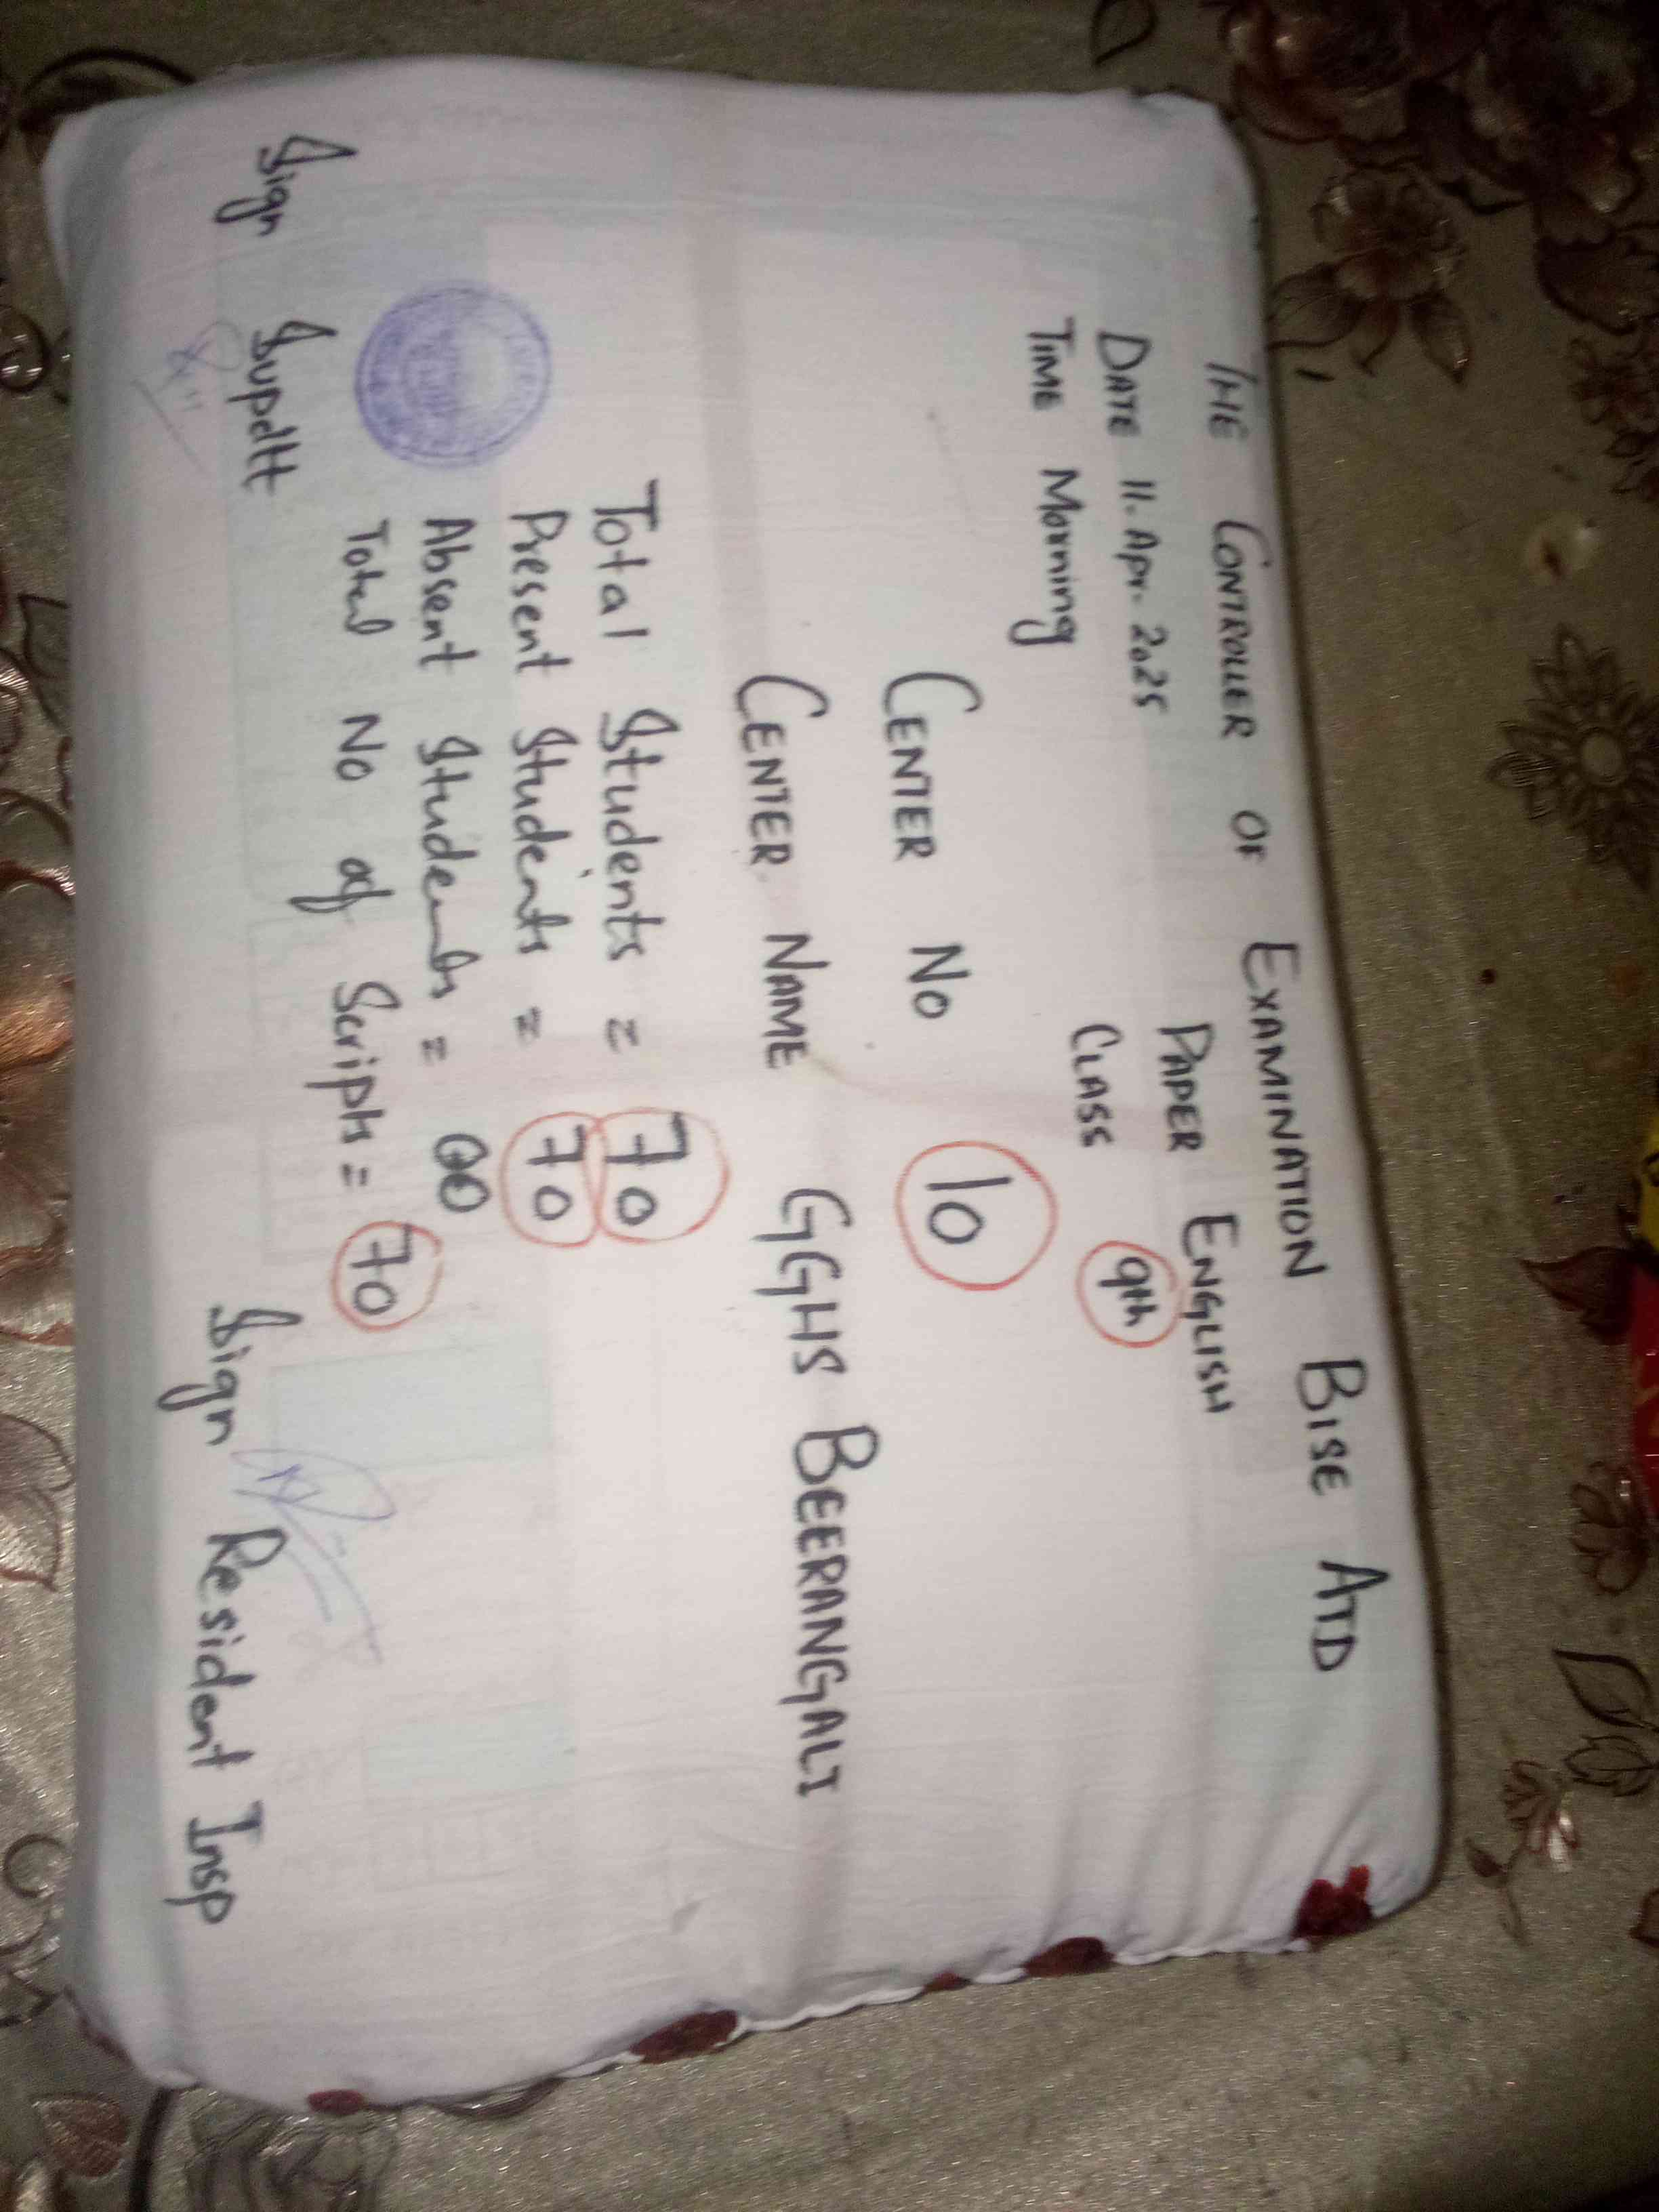 THE CONTROLLER OF EXAMINATION BISE ATD
DATE 11. Apr. 2025 PAPER ENGLISH
TIME Morning CLASS 9th
CENTER NO 10
CENTER NAME GGHS BEERANGALI
Total Students = 70
Present Students = 70
Absent Students = 00
Total No of Scripts = 70
Sign Supdtt Sign Resident Insp